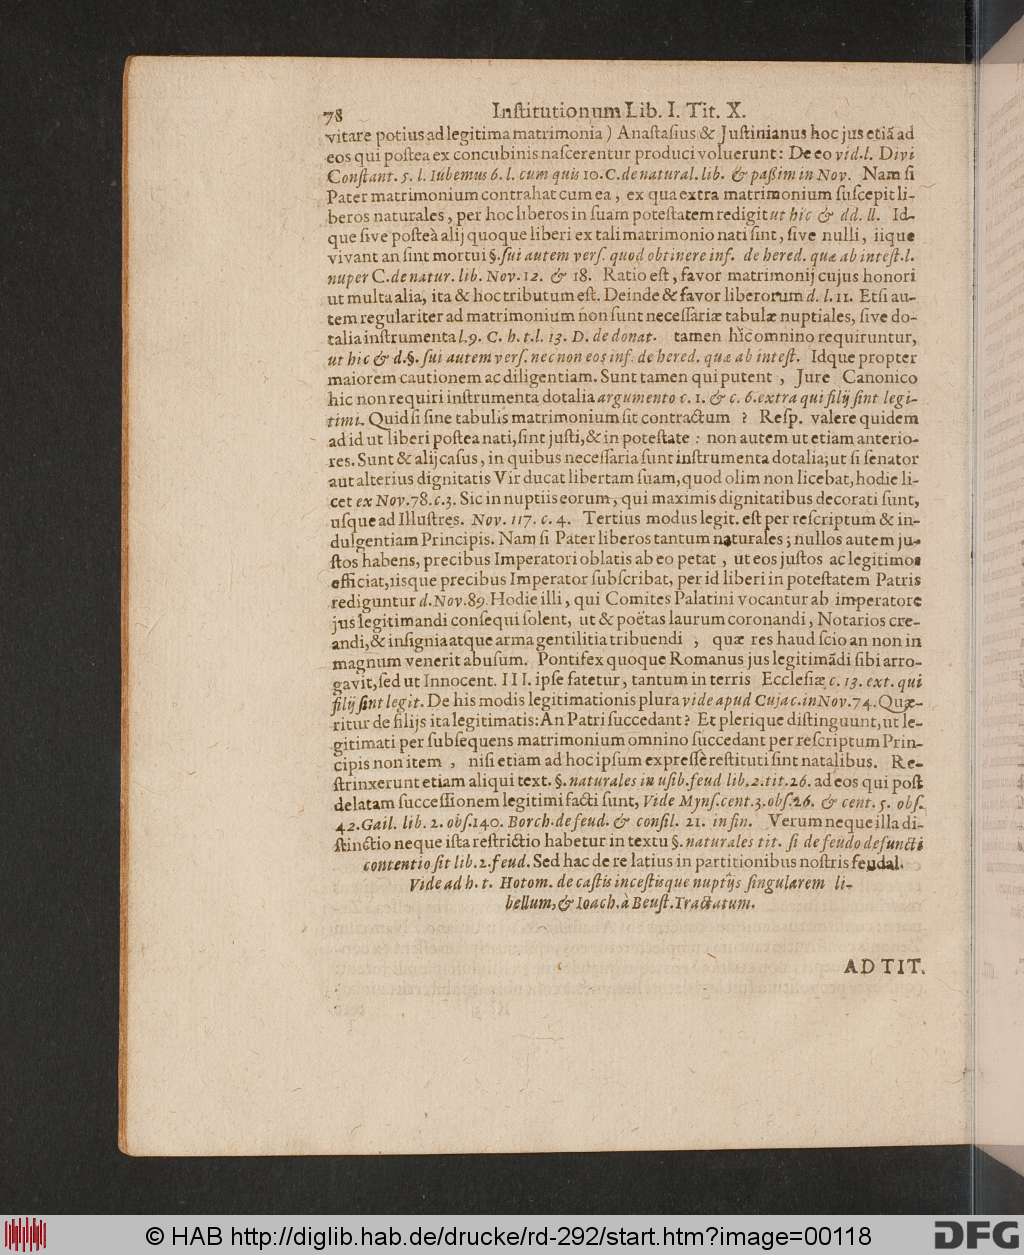 78 Institutionum Lib. I. Tit. X.
vitare potius ad legitima matrimonia) Anastasius & Justinianus hoc jus etiã ad
eos qui postea ex concubinis nascerentur produci voluerunt: De eo vid. l. Divi
Constant. 5. l. Iubemus 6. l. cum quis 10. C. de natural. lib. & passim in Nov. Nam si
Pater matrimonium contrahat cum ea, ex qua extra matrimonium suscepit li-
beros naturales, per hoc liberos in suam potestatem redigit ut hic & dd. ll. Id-
que sive posteà alij quoque liberi ex tali matrimonio nati sint, sive nulli, iique
vivant an sint mortui §. sui autem vers. quod obtinere inf. de hered. quæ ab intest. l.
nuper C. de natur. lib. Nov. 12. & 18. Ratio est, favor matrimonij cujus honori
ut multa alia, ita & hoc tributum est. Deinde & favor liberorum d. l. 11. Etsi au-
tem regulariter ad matrimonium non sunt necessariæ tabulæ nuptiales, sive do-
talia instrumenta l. 9. C. h. t. l. 13. D. de donat. tamen hîc omnino requiruntur,
ut hic & d. §. sui autem vers. nec non eos inf. de hered. quæ ab intest. Idque propter
maiorem cautionem ac diligentiam. Sunt tamen qui putent, Jure Canonico
hic non requiri instrumenta dotalia argumento c. 1. & c. 6. extra qui filij sint legi-
timi. Quid si sine tabulis matrimonium sit contractum? Resp. valere quidem
ad id ut liberi postea nati, sint justi, & in potestate: non autem ut etiam anterio-
res. Sunt & alij casus, in quibus necessaria sunt instrumenta dotalia; ut si senator
aut alterius dignitatis Vir ducat libertam suam, quod olim non licebat, hodie li-
cet ex Nov. 78. c. 3. Sic in nuptiis eorum, qui maximis dignitatibus decorati sunt,
usque ad Illustres. Nov. 117. c. 4. Tertius modus legit. est per rescriptum & in-
dulgentiam Principis. Nam si Pater liberos tantum naturales; nullos autem ju-
stos habens, precibus Imperatori oblatis ab eo petat, ut eos justos ac legitimos
efficiat, iisque precibus Imperator subscribat, per id liberi in potestatem Patris
rediguntur d. Nov. 89. Hodie illi, qui Comites Palatini vocantur ab imperatore
jus legitimandi consequi solent, ut & poëtas laurum coronandi, Notarios cre-
andi, & insignia atque arma gentilitia tribuendi, quæ res haud scio an non in
magnum venerit abusum. Pontifex quoque Romanus jus legitimãdi sibi arro-
gavit, sed ut Innocent. III. ipse fatetur, tantum in terris Ecclesiæ c. 13. ext. qui
filij sint legit. De his modis legitimationis plura vide apud Cujac. in Nov. 74. Quæ-
ritur de filijs ita legitimatis: An Patri succedant? Et plerique distinguunt, ut le-
gitimati per subsequens matrimonium omnino succedant per rescriptum Prin-
cipis non item, nisi etiam ad hoc ipsum expressè restituti sint natalibus. Re-
strinxerunt etiam aliqui text. §. naturales in usib. feud lib. 2. tit. 26. ad eos qui post
delatam successionem legitimi facti sunt, Vide Myns. cent. 3. obs. 26. & cent. 5. obs.
42. Gail. lib. 2. obs. 140. Borch. de feud. & consil. 21. in fin. Verum neque illa di-
stinctio neque ista restrictio habetur in textu §. naturales tit. si de feudo defuncti
contentio sit lib. 2. feud. Sed hac de re latius in partitionibus nostris feudal.
Vide ad h. t. Hotom. de castis incestisque nuptijs singularem li-
bellum, & Ioach. à Beust. Tractatum.
AD TIT.
© HAB http://diglib.hab.de/drucke/rd-292/start.htm?image=00118
DFG